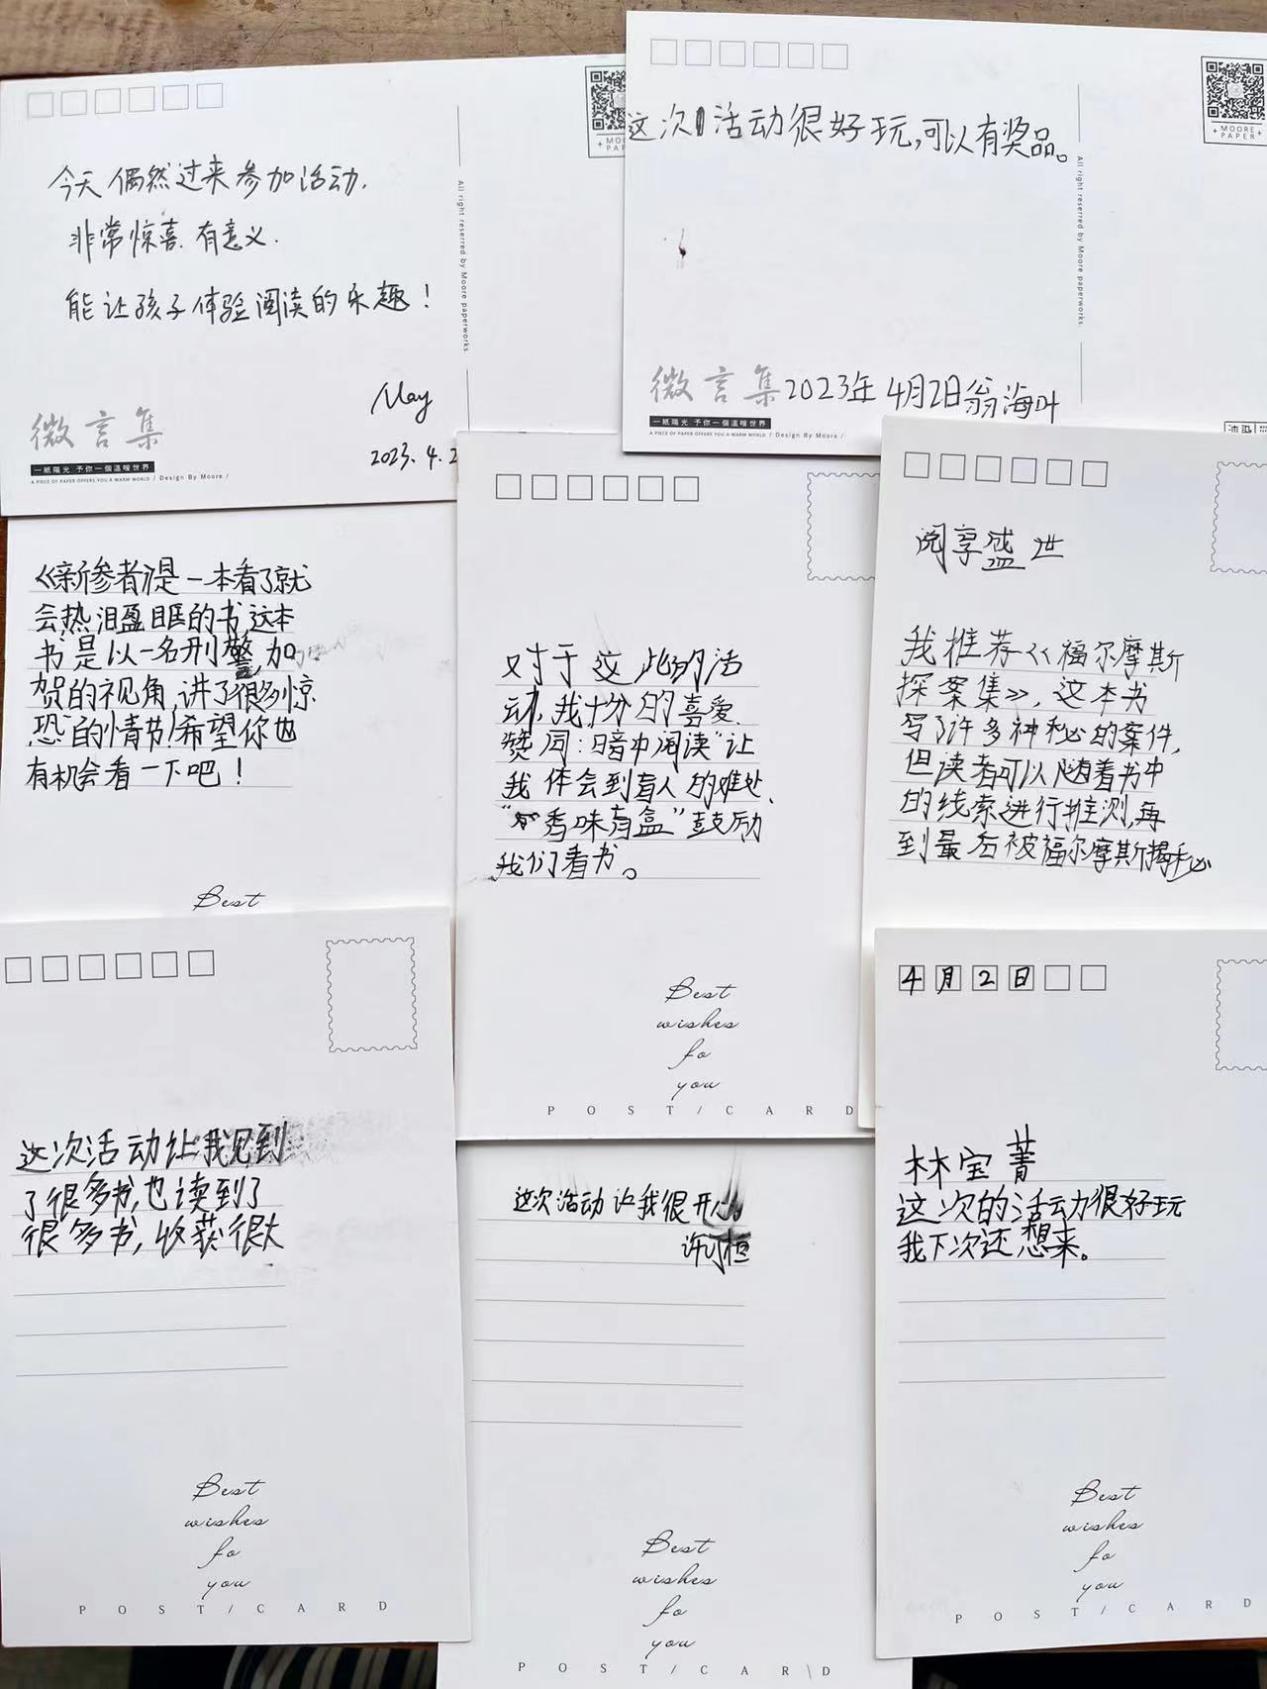 今天偶然过来参加活动.
非常惊喜.有意义.
能让孩子体验阅读的乐趣！
May
2023.4.2
微言集
一紙陽光 予你一個溫暖世界
A PIECE OF PAPER OFFERS YOU A WARM WORLD / Design By Moore /
All right reserred by Moore paperworks.
这次活动很好玩,可以有奖品。
2023年4月2日翁海叶
微言集
一紙陽光 予你一個溫暖世界
A PIECE OF PAPER OFFERS YOU A WARM WORLD / Design By Moore /
All right reserred by Moore paperworks.
MOORE
PAPER
《新参者》是一本看了就
会热泪盈眶的书,这本
书是以一名刑警,加
贺的视角,讲了很多惊
恐的情节!希望你也
有机会看一下吧！
Best
对于这此的活
动,我十分的喜爱.
赞同:“暗中阅读”让
我体会到盲人的难处、
“香味有盒”鼓励
我们看书。
Best
wishes
fo
you
POST/CARD
阅享盛世
我推荐《福尔摩斯
探案集》，这本书
写了许多神秘的案件,
但读者可以随着书中
的线索进行推测,再
到最后被福尔摩斯揭秘
这次活动让我见到
了很多书,也读到了
很多书,收获很大
Best
wishes
fo
you
POST/CARD
这次活动让我很开心。
许可桓
Best
wishes
fo
you
POST/CARD
4月2日
林宝菁
这次的活动很好玩
我下次还想来。
Best
wishes
fo
you
POST/CARD